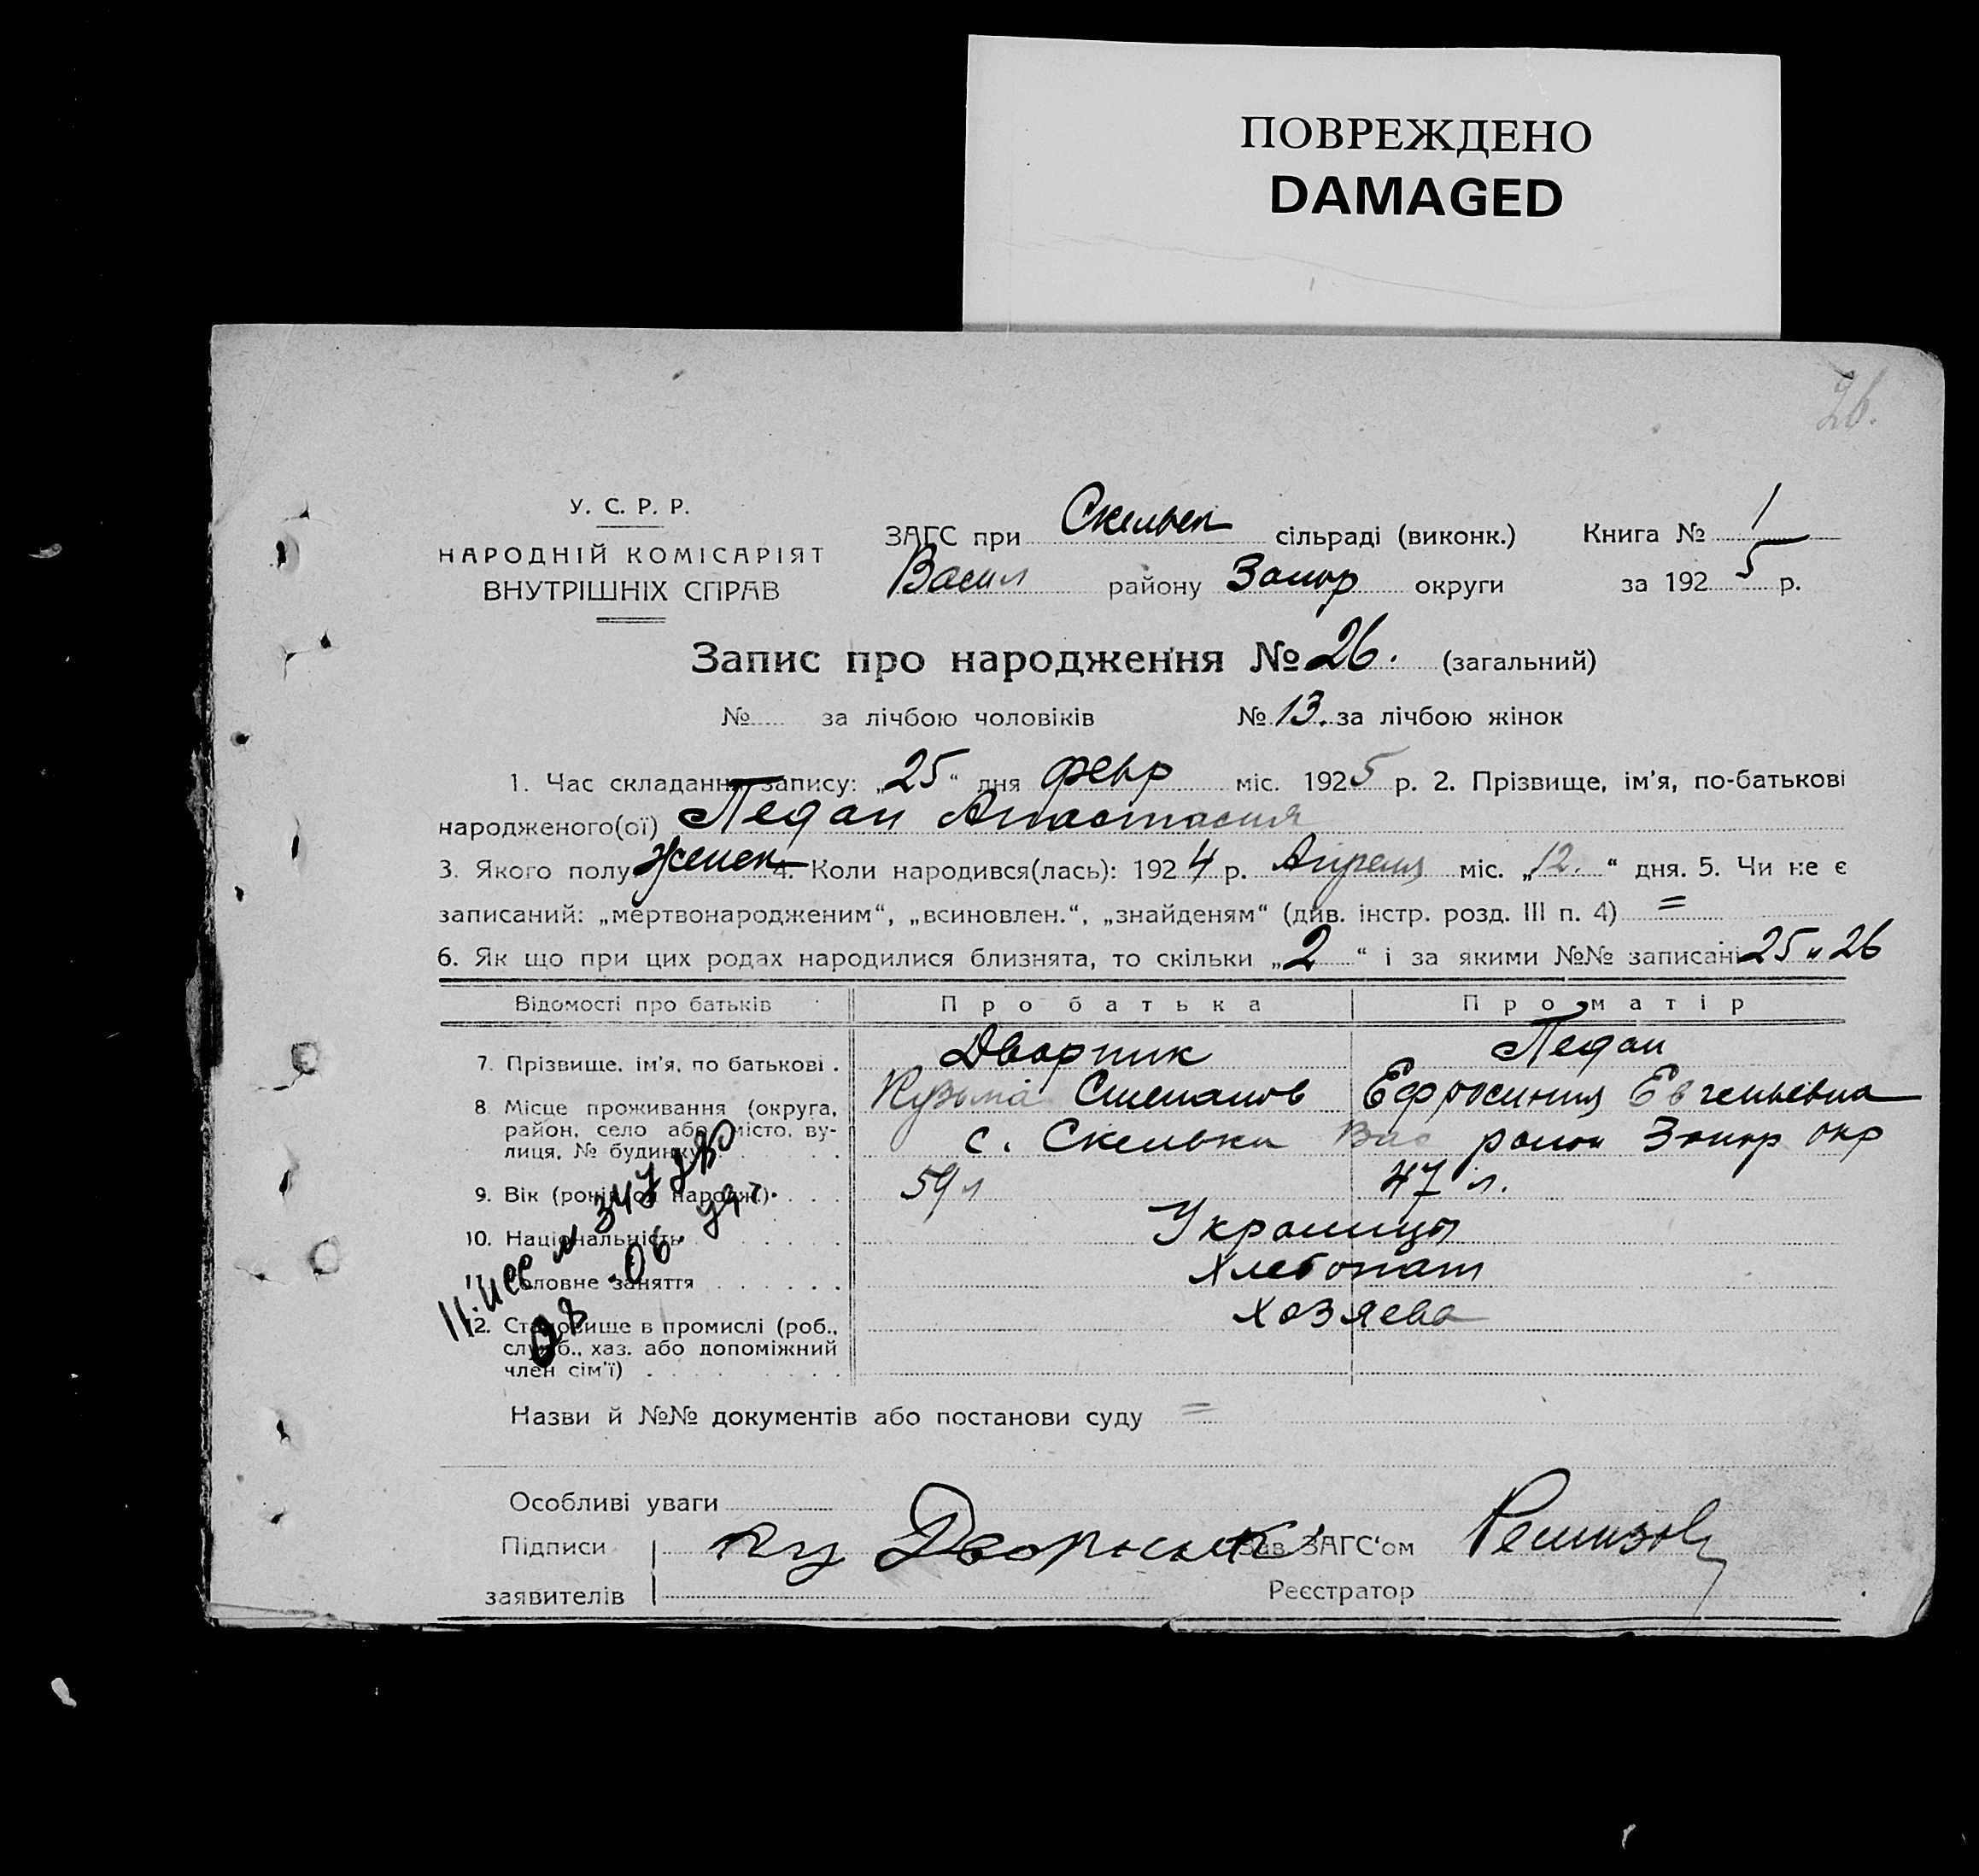 ПОВРЕЖДЕНО
DAMAGED
26.
У. С. Р. Р.
НАРОДНІЙ КОМІСАРІЯТ
ВНУТРІШНІХ СПРАВ
ЗАГС при Скельск сільраді (виконк.) Книга № 1
Васил району Запор округи за 1925 р.
Запис про народження № 26. (загальний)
№ за лічбою чоловіків № 13. за лічбою жінок
1. Час складання запису: „25“ дня февр міс. 1925 р. 2. Прізвище, ім'я, по-батькові
народженого(ої) Педан Анастасия
3. Якого полу женск 4. Коли народився(лась): 1924 р. Апреля міс. „12.“ дня. 5. Чи не є
записаний: „мертвонародженим“, „всиновлен.“, „знайденям“ (див. інстр. розд. III п. 4) =
6. Як що при цих родах народилися близнята, то скільки „2“ і за якими №№ записані 25 и 26
Відомості про батьків Про батька Про матір
7. Прізвище, ім'я, по батькові . Дворник Педан
Кузьма Степанов Ефросиния Евгеньевна
8. Місце проживання (округа, район, село або місто, вулиця, № будинку) с. Скельки Вас район Запор окр
9. Вік (років од народж.) 59 л 47 л.
10. Національність Украинцы
11. Головне заняття Хлебопаш
12. Становище в промислі (роб., служб., хаз. або допоміжний член сім'ї) хозяева
Назви й №№ документів або постанови суду =
Особливі уваги
Підписи Ку Дворник Зав. ЗАГС'ом Ремизов
заявителів Реєстратор